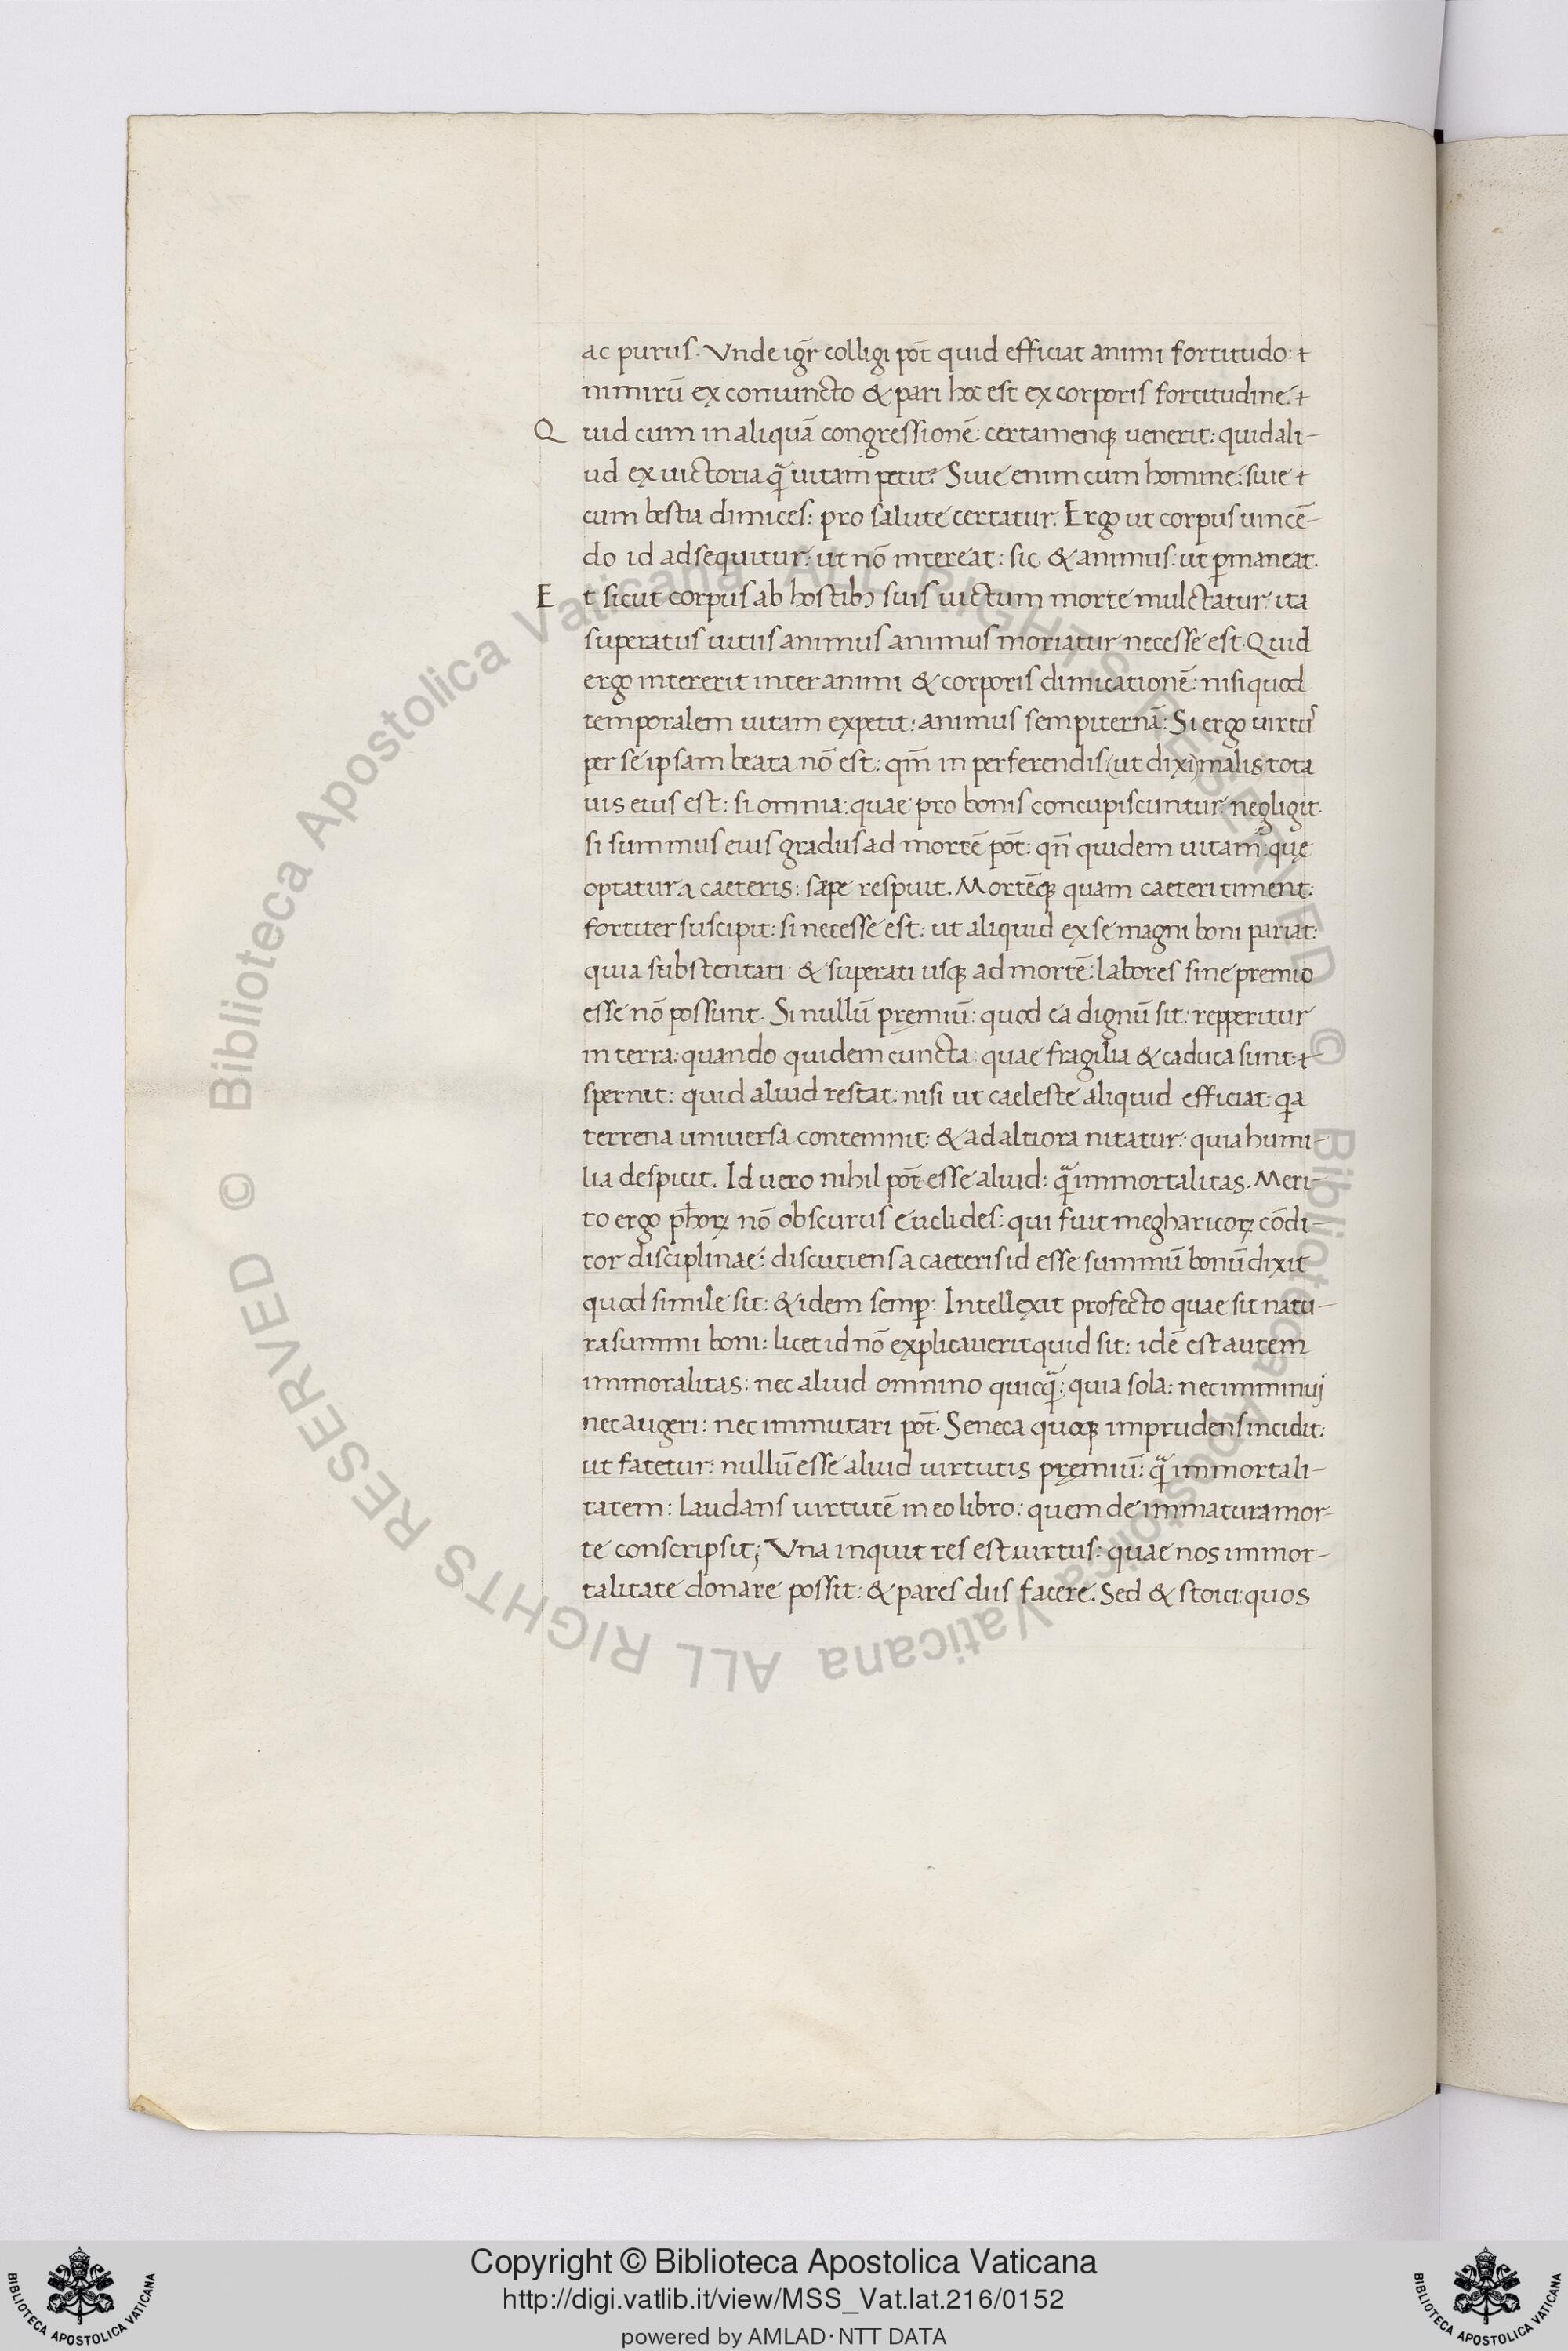 ac purus. Vnde igr̄ colligi pōt quid efficiat animi fortitudo:
nimirū ex coniuncto & pari hoc est ex corporis fortitudine.
Quid cum in aliquā congressionē: certamenq; uenerit: quid ali-
ud ex uictoria q̄ uitam petit? Siue enim cum homine: siue
cum bestia dimices: pro salute certatur. Ergo ut corpus uincē-
do id adsequitur: ut nō intereat: sic & animus: ut ꝑmaneat.
Et sicut corpus ab hostibꝫ suis uictum morte mulctatur: ita
superatus uitiis animus animus moriatur necesse est. Quid
ergo intererit inter animi & corporis dimicationē: nisi quod
temporalem uitam expetit: animus sempiternā: Si ergo uirtus
per se ipsam beata nō est: qm̄ in perferendis (ut dixi) malis tota
uis eius est: si omnia: quae pro bonis concupiscuntur: negligit.
si summus eius gradus ad mortē pōt: qn̄ quidem uitam: quę
optatur a caeteris: sæpe respuit. Mortēq; quam caeteri timent:
fortiter suscipit: si necesse est: ut aliquid ex se magni boni pariat:
quia substentati: & superati usq; ad mortē: labores sine premio
esse nō possunt. Si nullū pręmiū: quod ea dignū sit: repperitur
in terra: quando quidem cuncta: quae fragilia & caduca sunt:
spernit: quid aliud restat: nisi ut caeleste aliquid efficiat: qa
terrena uniuersa contemnit: & ad altiora nitatur: quia humi-
lia despicit. Id uero nihil pōt esse aliud: q̄ immortalitas. Meri-
to ergo ph̄oꝝ nō obscurus Euclides: qui fuit megharicoꝝ cōdi-
tor disciplinae: discutiens a caeteris id esse summū bonū dixit
quod simile sit: & idem semꝑ: Intellexit profecto quae sit natu-
ra summi boni: licet id nō explicauerit quid sit: idē est autem
immoralitas: nec aliud omnino quicq̄: quia sola: nec imminuj
nec augeri: nec immutari pōt. Seneca quoq; imprudens incidit:
ut fatetur: nullū esse aliud uirtutis pręmiū: q̄ immortali-
tatem: Laudans uirtutē in eo libro: quem de immatura mor-
te conscripsit; Vna inquit res est uirtus: quae nos immor-
talitate donare possit: & pares diis facere. Sed & stoici: quos
© Biblioteca Apostolica Vaticana ALL RIGHTS RESERVED © Biblioteca Apostolica Vaticana ALL RIGHTS RESERVED
BIBLIOTECA APOSTOLICA VATICANA
Copyright © Biblioteca Apostolica Vaticana
http://digi.vatlib.it/view/MSS_Vat.lat.216/0152
powered by AMLAD·NTT DATA
BIBLIOTECA APOSTOLICA VATICANA